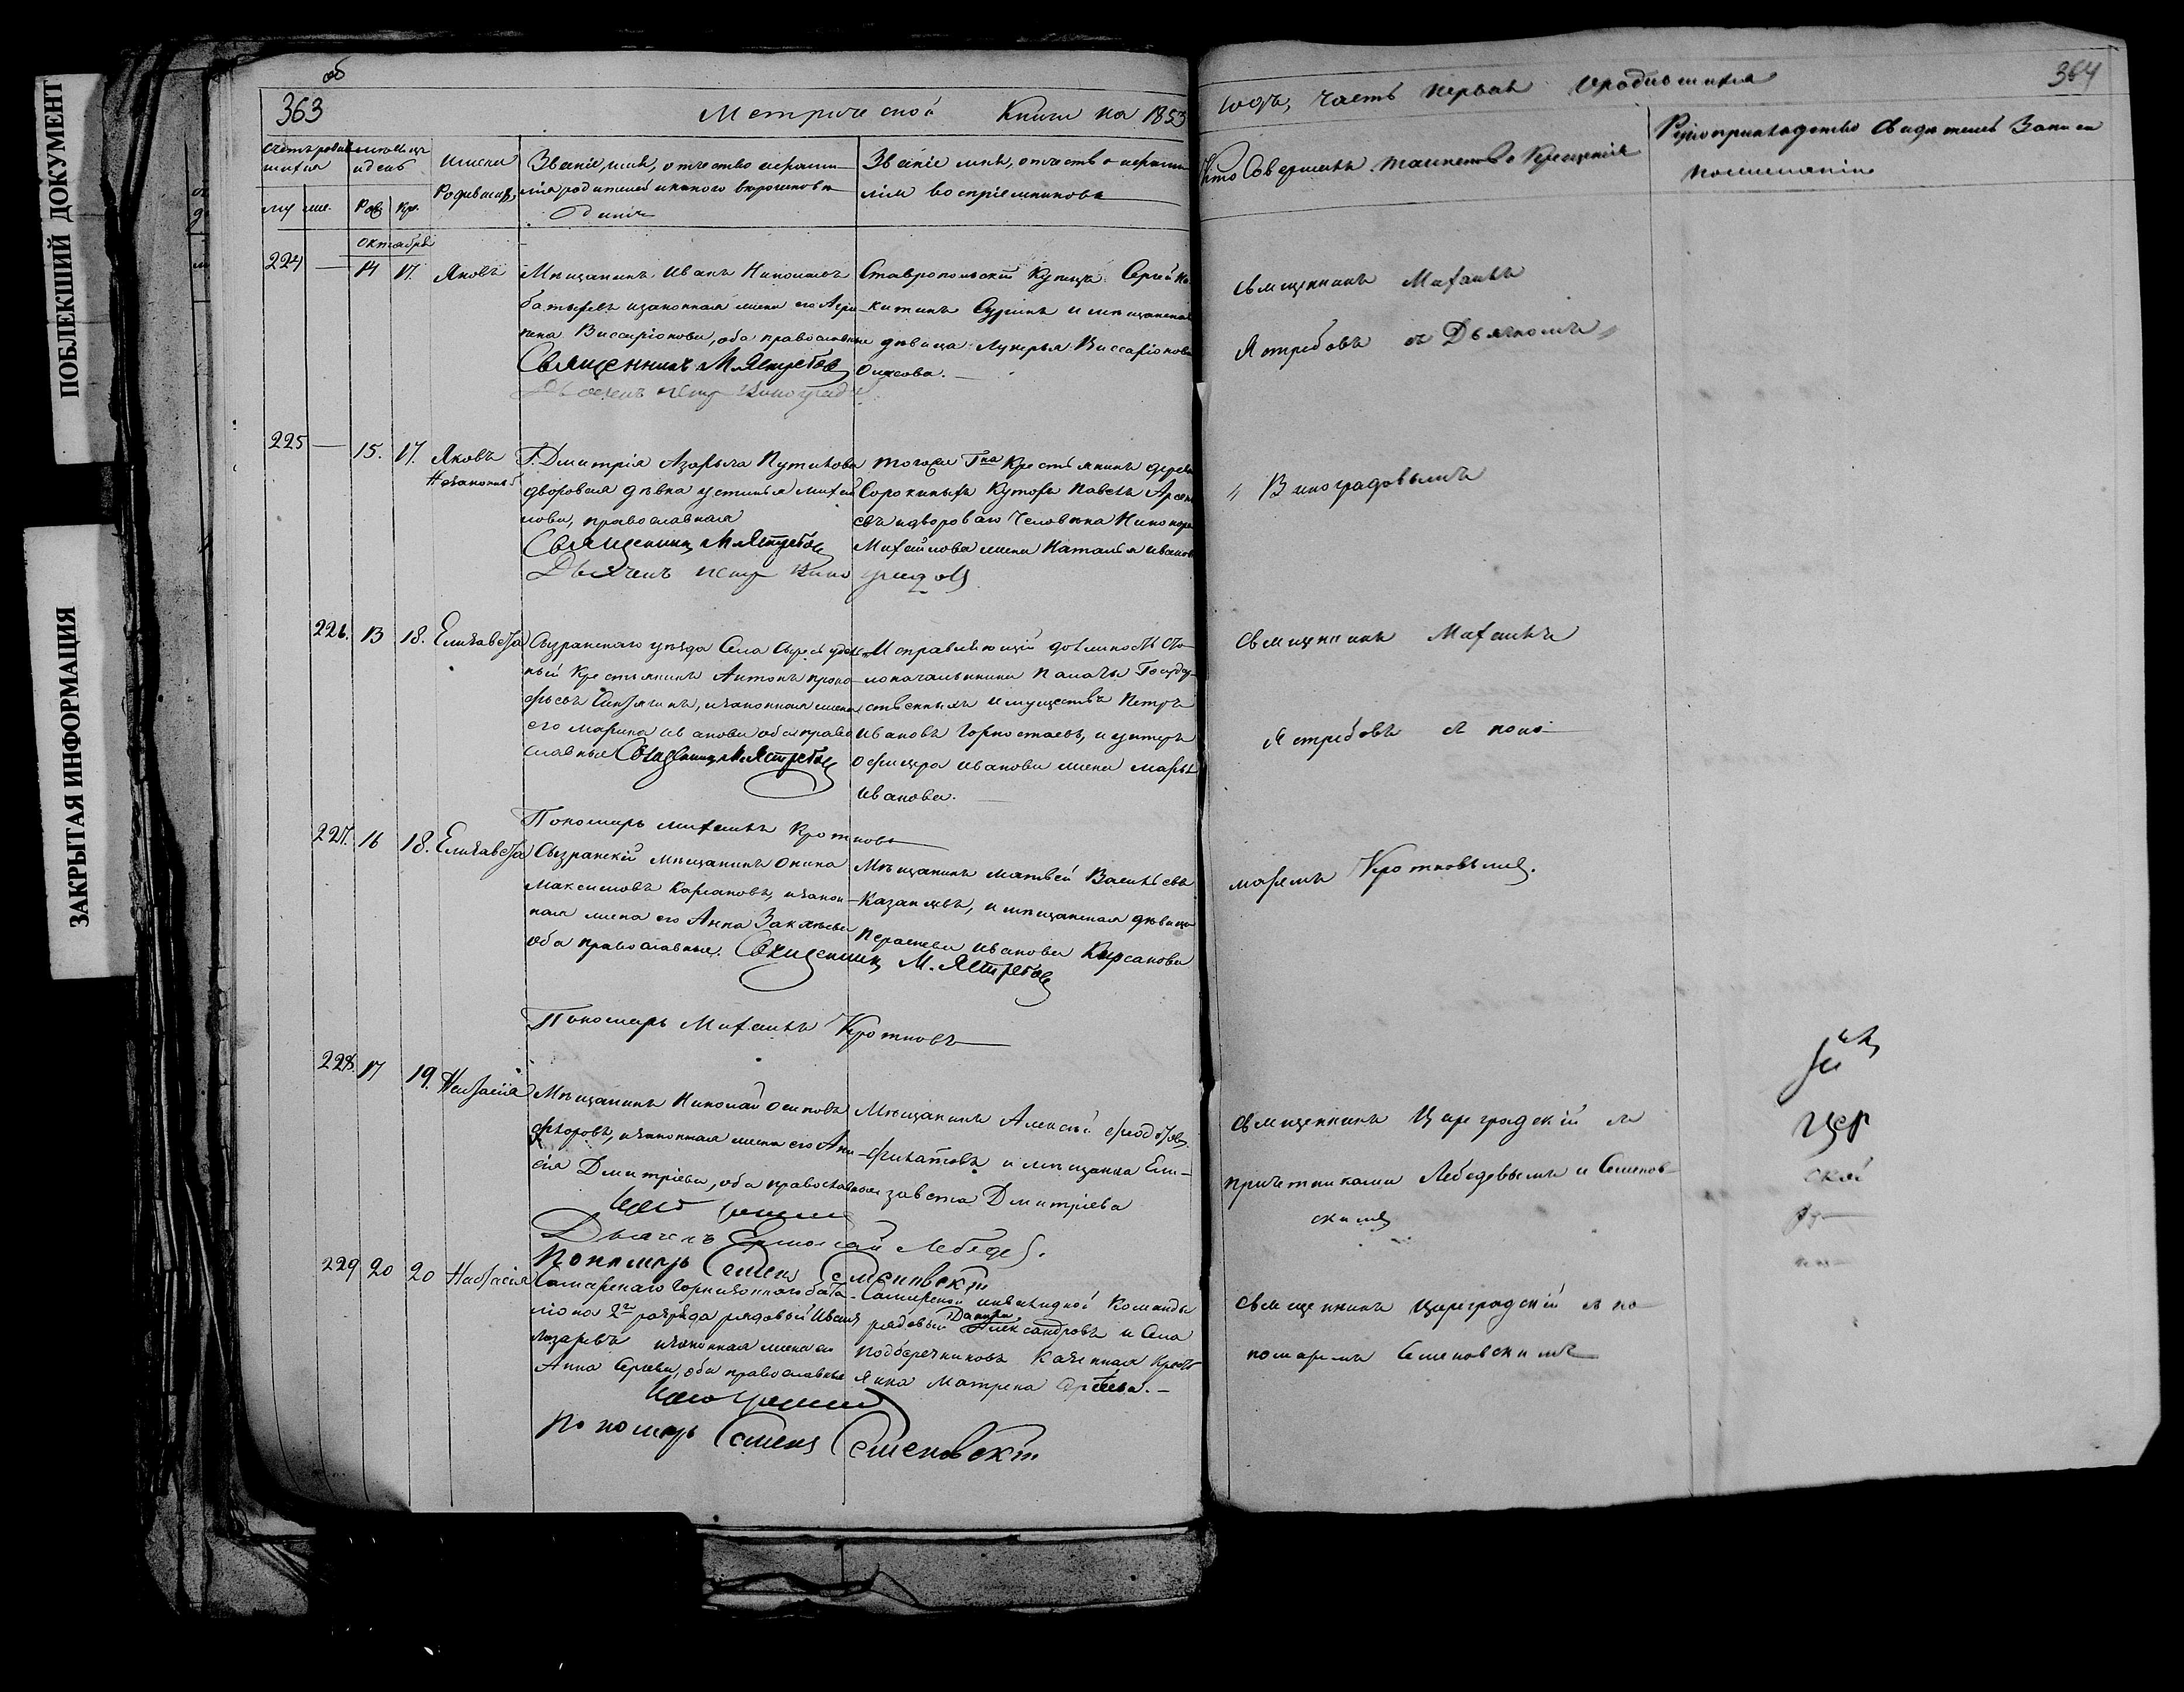 ПОБЛЕКШИЙ ДОКУМЕНТ
ЗАКРЫТАЯ ИНФОРМАЦИЯ
об
363
Метрической Книги на 1853
годъ, часть первая о родившихся
364
Имена
Родившихся
Званіе, имя, отчество и фами
лія родителей и какого вероисповѣ
данія
Званіе имя, отчество и фами
лія воспріемниковъ
Кто совершалъ таинство Крещенія
Рукоприкладство свидѣтелей записи
по желанію
му жен. Рож Кре.
октября
224 — 14 17. Яковъ
Мѣщанинъ Иванъ Николаевъ
батыревъ и законная жена его Агри
пина Виссаріонова, оба православные
Священникъ М. Ястребовъ
Дьячекъ Петръ Виноградовъ
Ставропольскій Купецъ Сергѣй Ни
китинъ Суринъ и мѣщанская
дѣвица Лукерья Виссаріонова
Священникъ Михаилъ
Ястребовъ съ Дьячкомъ
225 — 15. 17. Яковъ
Незаконный
Г. Дмитрія Азарьича Путилова
дворовая дѣвка Устинья Михай
лова, православная
Священникъ М. Ястребовъ
Дьячекъ Петръ Виноградовъ
тогоже Гна Крестьянинъ деревни
Сорокиныхъ Хуторъ Павелъ Арсень
евъ и двороваго человѣка Никонора
Михайлова жена Наталья Иванова
Виноградовымъ
226. 13 18. Елизавета
Сызранскаго уѣзда Села удѣль
ный Крестьянинъ Антонъ Проко
фьевъ, и законная жена
его Марина Иванова оба право
славные Священникъ М. Ястребовъ
Исправляющій должность Сто
лоначальника Палаты Государ
ственныхъ имуществъ Петръ
Ивановъ Горностаевъ, и унтеръ
офицера Иванова жена Марья
Иванова.
Пономарь Михаилъ Кротковъ
Священникъ Михаилъ
Ястребовъ съ поно
маремъ Кротковымъ.
227. 16 18. Елизавета
Сызранскій мѣщанинъ
Максимовъ, и закон
ная жена его Анна
оба православные. Священникъ М. Ястребовъ
Мѣщанинъ Матвей Васильевъ
Казанцевъ, и мѣщанская дѣвица
Иванова Кирсанова
Пономарь Михаилъ Кротковъ
228. 17 19. Настасія
Мѣщанинъ Николай Осиповъ
Федоровъ, и законная жена его Ани
сія Дмитріева, оба православные
Дьячекъ Ермолай Лебедевъ.
Пономарь Семенъ Семеновскій
Мѣщанинъ Алексѣй Федотовъ
Филатовъ и мѣщанка Ели
завета Дмитріева
Священникъ Цареградскій съ
причетниками Лебедевымъ и Семенов
скимъ
цер
ской
229 20 20 Настасія
Самарскаго Гарнизоннаго бата
ліона 2го разряда рядовой Иванъ
Лазаревъ и законная жена его
Анна Сергѣева, оба православные
Самарской инвалидной Команды
рядовый Александровъ и Села
Подберечниковъ Казенная Кресть
янка Матрена Сергѣева. —
Пономарь Семенъ Семеновскій
Священникъ Цареградскій съ по
номаремъ Семеновскимъ